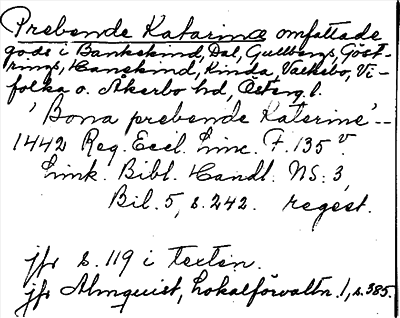 Prebende Katarine omfattade
gods i Bankekind, Dal, Gullbergs, Göst-
rings, Hanekind, Kinda, Valkebo, Vi-
folka o. Åkerbo hd, Österg. l.
'Bona prebende Katerine' --
1442 Reg. Eccl. Linc. F. 135 v.
Link. Bibl. Handl. NS. 3,
Bil. 5, s. 242. regest.
jfr s. 119 i texten.
jfr Almquist, Lokalförvaltn. 1, s. 385.